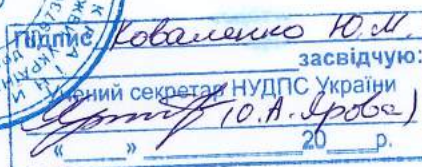 Підпис Коваленко Ю.М.
засвідчую:
Учений секретар НУДПС України
(Ю.А. Ярова)
« » 20 р.